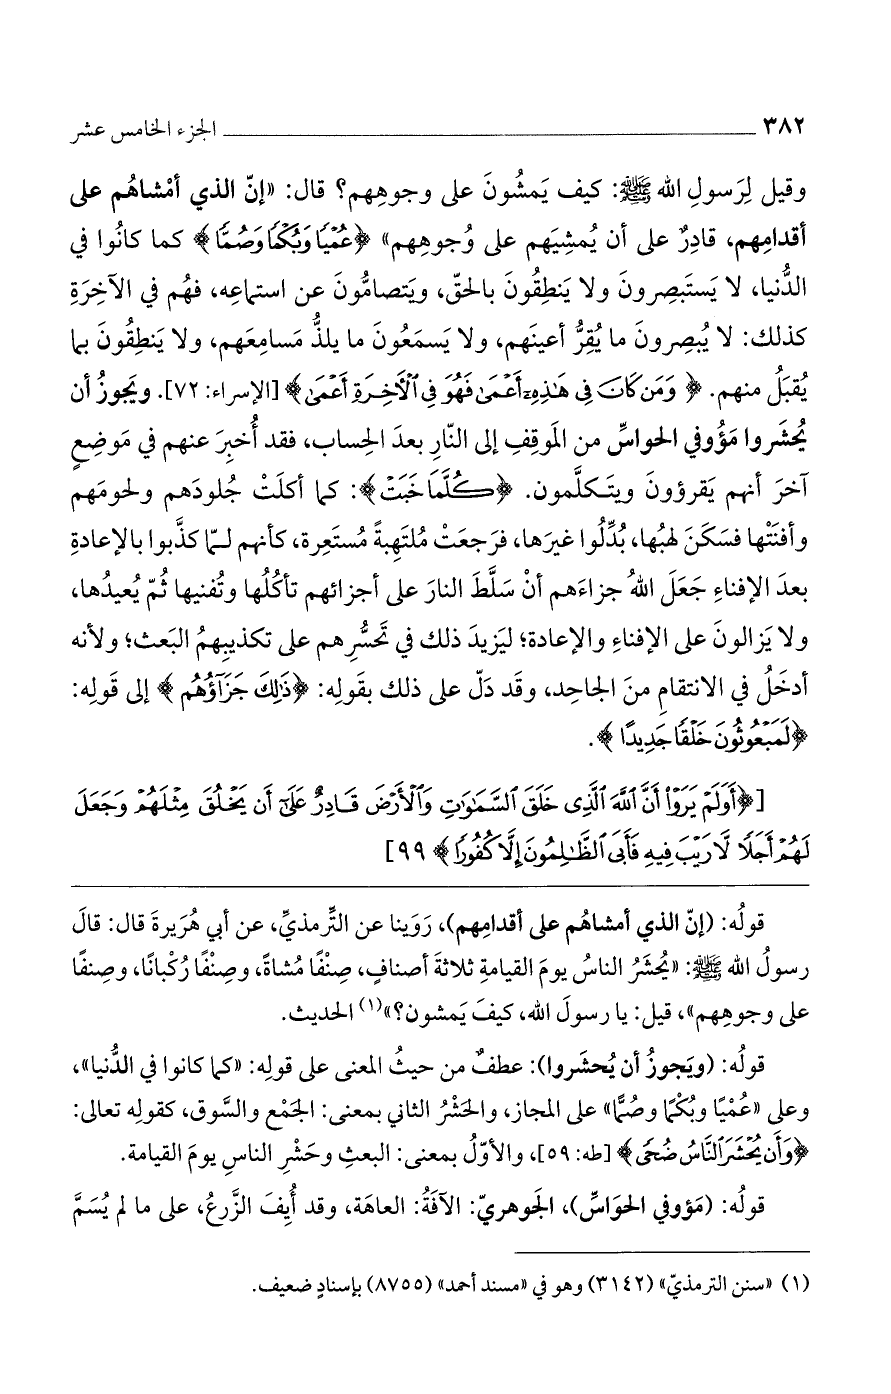 ٣٨٢ ـــــــ الجزء الخامس عشر
وقيل لِرَسولِ الله ﷺ: كيف يَمشُونَ على وجوهِهم؟ قال: «إنّ الذي أمْشاهُم على
أقدامِهم، قادِرٌ على أن يُمشِيَهم على وُجوهِهم» ﴿عُمْيًا وَبُكْمًا وَصُمًّا﴾ كما كانُوا في
الدُّنيا، لا يَستَبصِرونَ ولا يَنطِقُونَ بالحقّ، ويَتصامُّونَ عن استماعِه، فهُم في الآخِرَةِ
كذلك: لا يُبصِرونَ ما يُقِرُّ أعينَهم، ولا يَسمَعُونَ ما يلذُّ مَسامِعَهم، ولا يَنطِقُونَ بما
يُقبَلُ منهم. ﴿وَمَن كَانَ فِى هَٰذِهِۦٓ أَعْمَىٰ فَهُوَ فِى ٱلْأَخِرَةِ أَعْمَىٰ﴾ [الإسراء: ٧٢]. ويَجوزُ أن
يُحشَروا مَؤُوفي الحواسِّ من المَوقِفِ إلى النّارِ بعدَ الحِساب، فقد أُخبِرَ عنهم في مَوضِعٍ
آخرَ أنهم يَقرؤونَ ويتكلَّمون. ﴿كُلَّمَا خَبَتْ﴾: كما أكلَتْ جُلودَهم ولحومَهم
وأفنَتْها فسَكَنَ لهبُها، بُدِّلُوا غيرَها، فرَجعَتْ مُلتَهِبةً مُستَعِرة، كأنهم لـمّا كذَّبوا بالإعادةِ
بعدَ الإفناءِ جَعَلَ اللهُ جزاءَهم أنْ سَلَّطَ النارَ على أجزائهم تأكُلُها وتُفنيها ثُمّ يُعيدُها،
ولا يَزالونَ على الإفناءِ والإعادة؛ ليَزيدَ ذلك في تَحسُّرِهم على تكذيبِهمُ البَعث؛ ولأنه
أدخَلُ في الانتقامِ منَ الجاحِد، وقَد دَلّ على ذلك بقَولِه: ﴿ذَٰلِكَ جَزَآؤُهُم﴾ إلى قَولِه:
﴿لَمَبْعُوثُونَ خَلْقًا جَدِيدًا﴾.
[﴿أَوَلَمْ يَرَوْا۟ أَنَّ ٱللَّهَ ٱلَّذِى خَلَقَ ٱلسَّمَٰوَٰتِ وَٱلْأَرْضَ قَادِرٌ عَلَىٰٓ أَن يَخْلُقَ مِثْلَهُمْ وَجَعَلَ
لَهُمْ أَجَلًا لَّا رَيْبَ فِيهِ فَأَبَى ٱلظَّٰلِمُونَ إِلَّا كُفُورًا﴾ ٩٩]
قولُه: (إنّ الذي أمشاهُم على أقدامِهم)، رَوَينا عن التِّرمذيِّ، عن أبي هُرَيرةَ قال: قالَ
رسولُ الله ﷺ: «يُحشَرُ الناسُ يومَ القيامةِ ثلاثةَ أصنافٍ، صِنفًا مُشاةً، وصِنْفًا رُكْبانًا، وصِنفًا
على وجوهِهم»، قيل: يا رسولَ الله، كيفَ يَمشون؟»(١) الحديث.
قولُه: (ويَجوزُ أن يُحشَروا): عطفٌ من حيثُ المعنى على قولِه: «كما كانوا في الدُّنيا»،
وعلى «عُمْيًا وبُكْمًا وصُمًّا» على المجاز، والحَشْرُ الثاني بمعنى: الجَمْع والسَّوق، كقولِه تعالى:
﴿وَأَن يُحْشَرَ ٱلنَّاسُ ضُحًى﴾ [طه: ٥٩]، والأوّلُ بمعنى: البعثِ وحَشْرِ الناسِ يومَ القيامة.
قولُه: (مَؤوفي الحوَاسِّ)، الجَوهريّ: الآفَةُ: العاهَة، وقد أُيِفَ الزَّرعُ، على ما لم يُسَمَّ
(١) «سنن الترمذيّ» (٣١٤٢) وهو في «مسند أحمد» (٨٧٥٥) بإسنادٍ ضعيف.